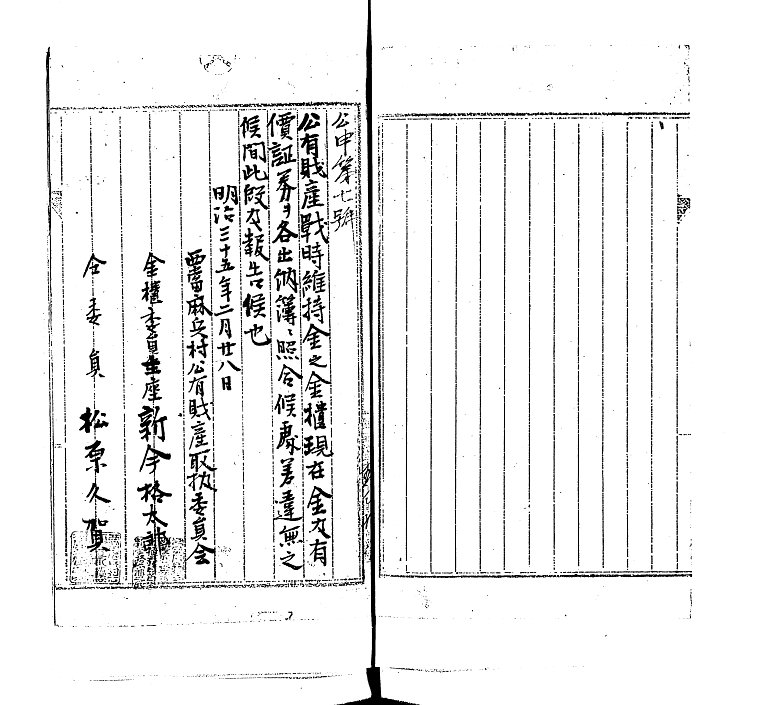 公申第七號
公有戝産戰時維持金之金櫃現在金及有
價証券ヲ各出納簿ニ照合候處差違無之
候間此段及報告候也
明治三十五年二月廿八日
西當麻兵村公有戝産取扱委員会
金櫃委員主座 新命格太郎
仝委員 松原久賀